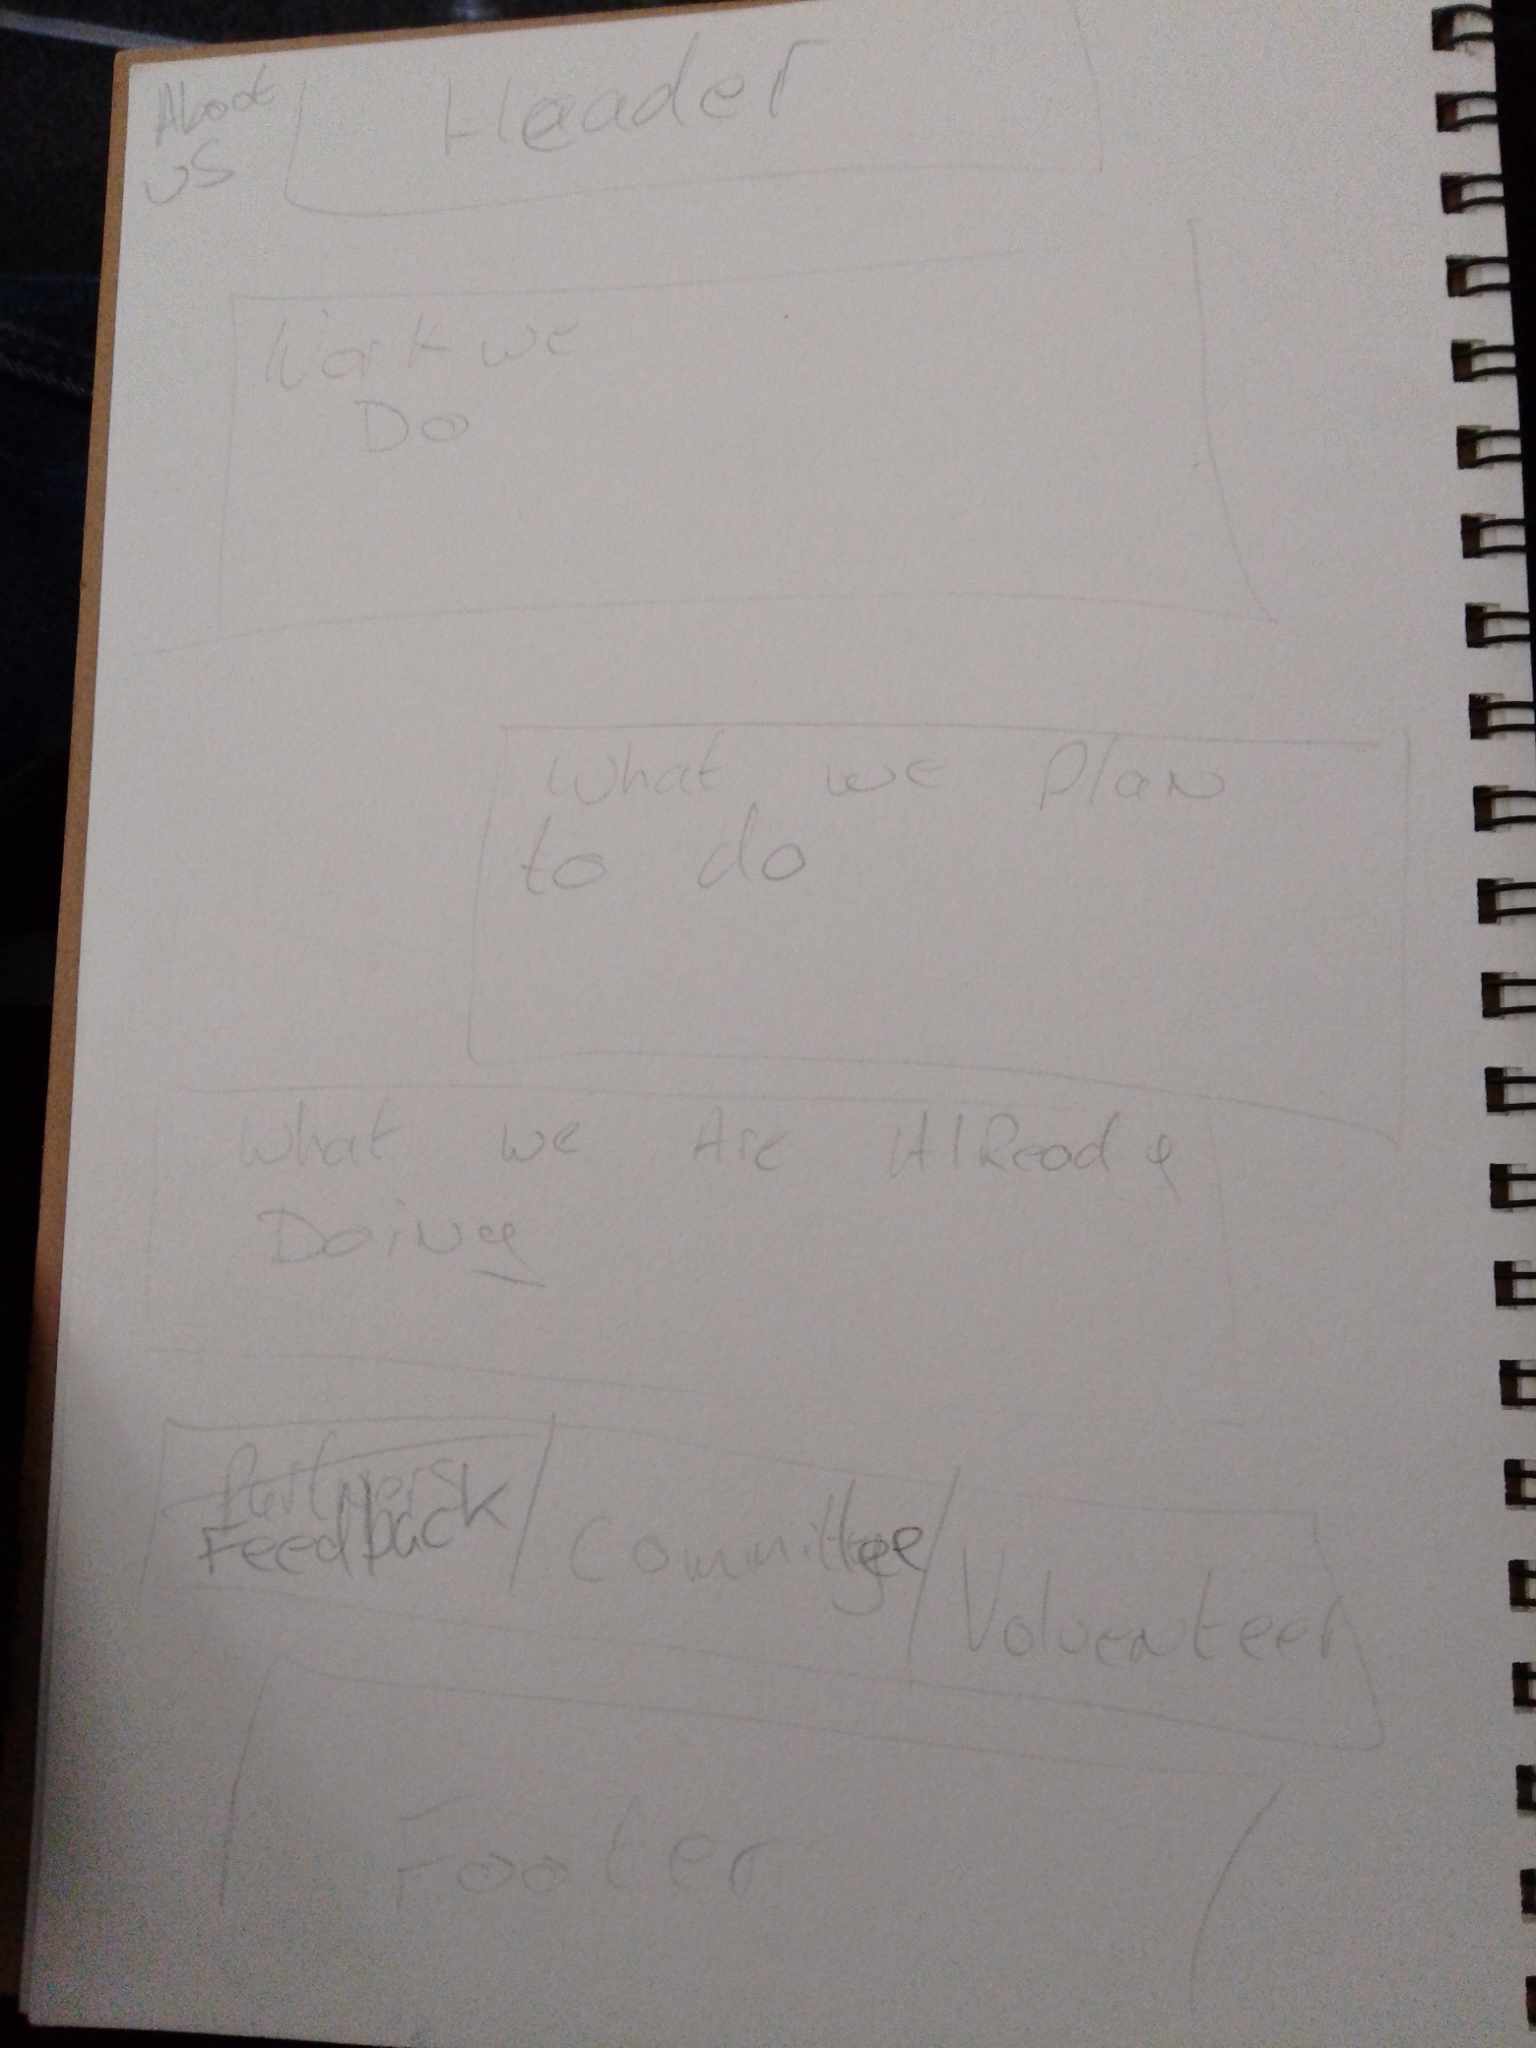 About
us
Header
Work we
Do
What we Plan
to do
What we Are AlReady
Doing
Partners
Feedback
Committee
Voluenteer
Footer